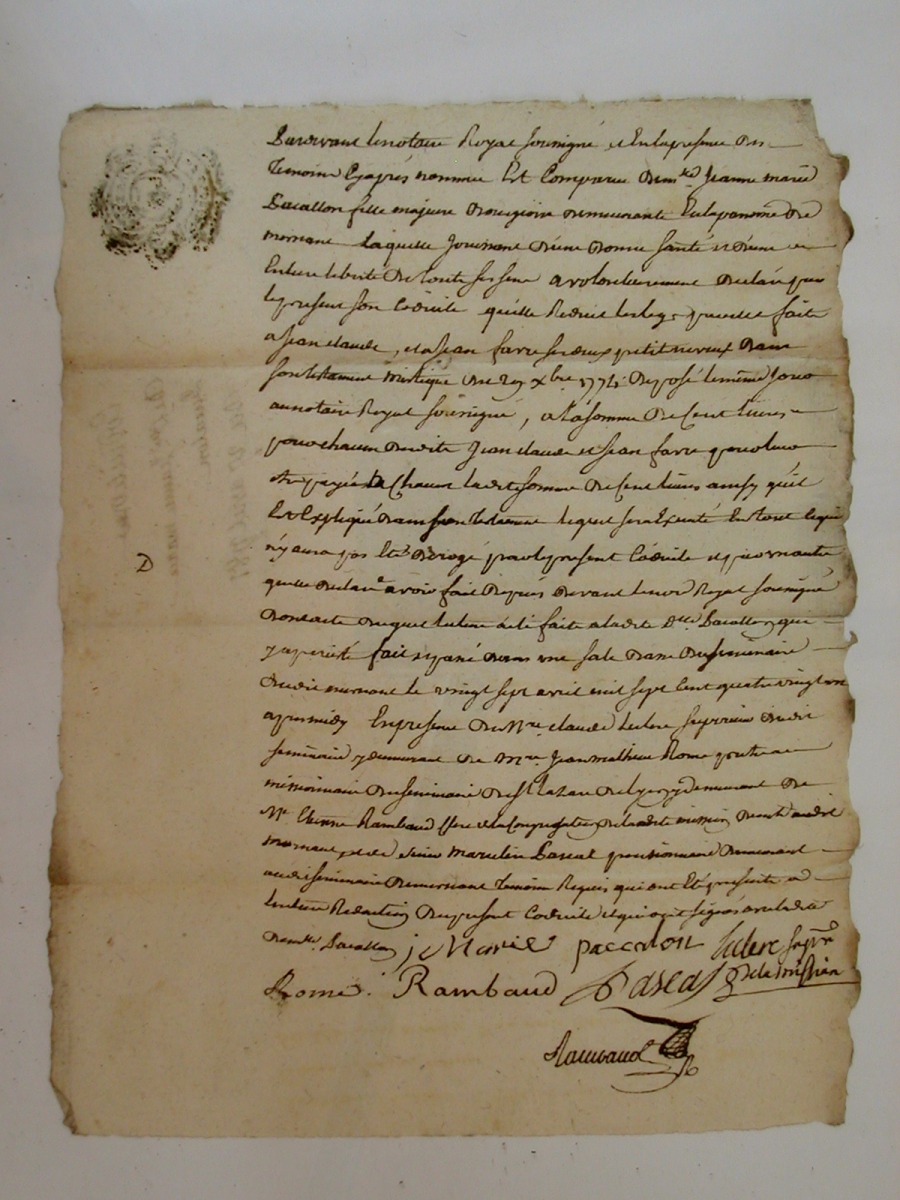 Pardevant le notaire Royal soussigné, et en la presence des
temoins cyaprés nommés Est comparue dem.lle Jeanne marie
Paccallon fille majeure Bourgeoise demeurante en la paroisse de
mornant laquelle jouissant d'une bonne santé et d'une
entiere liberté de touts ses sens a volontairement declaré par
le present son codicile quelle Reduit les legs par elle faits
a jean claude, et a jean favre ses deux petits neveux dans
son testament mistique du 29 xbre 1774 deposé le même jour
au notaire Royal soussigné, a la somme de cent livres
pour chacun desdits jean claude et jean favre pour leur
etre payée a chacun ladite somme de cent livres ainsy qu'il
Est Expliqué dans son testament lequel sera Executé en tout ce qui
n'y aura pas Eté derogé par le present codicile
quelle declare avoir fait Rediger devant le no.re Royal soussigné
Dont acte duquel lecture a eté faite a ladite d.lle Paccallon qui
y a persisté fait et passé dans une sale basse du seminaire
dudit mornant le vingt sept avril mil sept cent quatre vingt un
apres midy En presence de M.re claude leclerc superieur dudit
seminaire y demeurant de M.re jean mathieu Rome prêtre
missionnaire du seminaire de St lazare de y demeurant de
Mr Etienne Rambaud frere de la congregation de ladite mission demt audit
mornant, et de sieur Marcelin Pascal pensionnaire demeurant
audit seminaire de mornant temoins Requis qui ont Eté presents a
lentiere Redaction du present codicile et qui ont signés avec ladite
dem.lle Paccallon j. Marie paccalon leclerc supr
Rome. Rambaud Pascal p de la mission
Rambaud
D